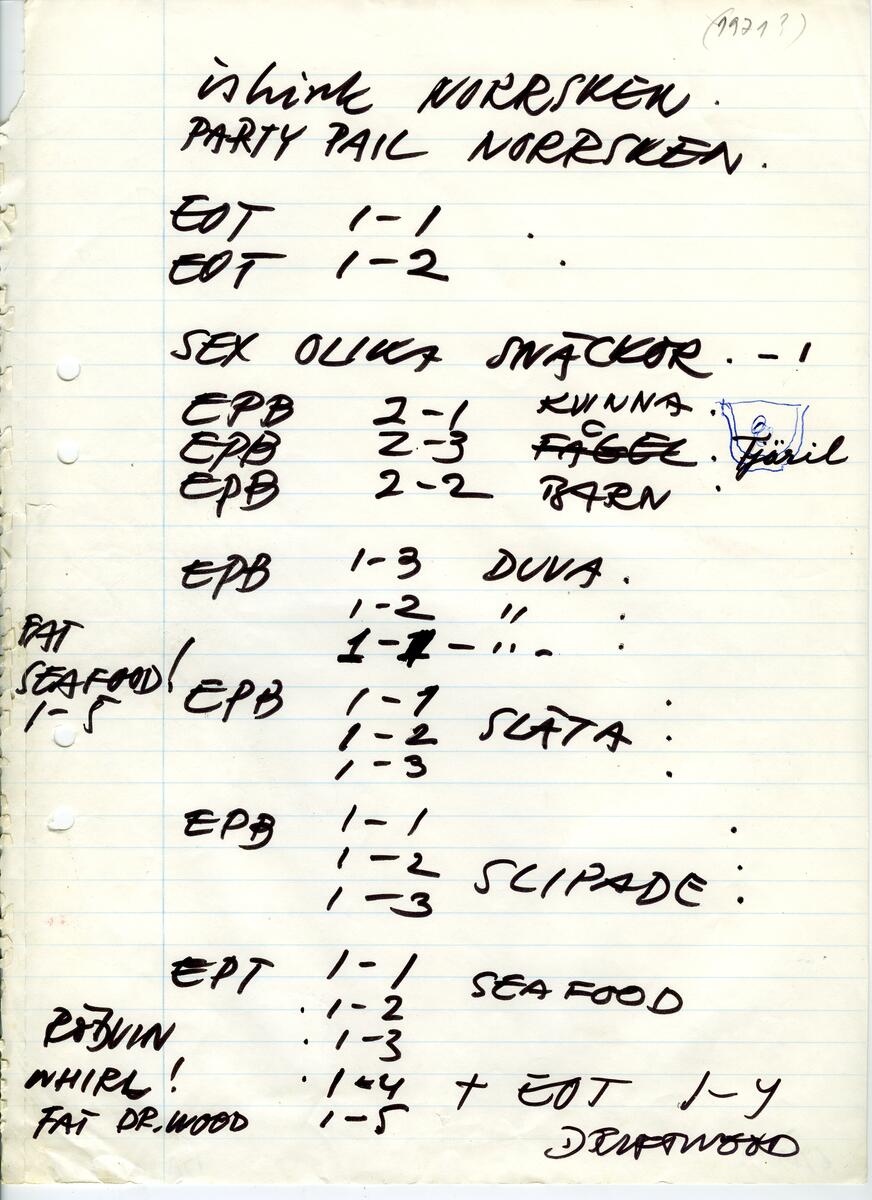 (1971?)
ishink NORRSKEN.
PARTY PAIL NORRSKEN.
EOT 1-1 .
EOT 1-2 .
SEX OLIKA SNÄCKOR. - 1
EPB 2-1 KVINNA .
EPB 2-3 FÅGEL . Fjäril
EPB 2-2 BARN .
EPB 1-3 DUVA .
1-2 " .
1-1 - " - .
FAT
SEAFOOD!
1-5
EPB 1-1 .
1-2 SLÄTA .
1-3 .
EPB 1-1 .
1-2 .
1-3 SLIPADE .
EPT 1-1
. 1-2 SEAFOOD
RÖDVIN . 1-3
WHIRL! . 1-4 + EOT 1-4
FAT DR.WOOD 1-5
DRIFTWOOD